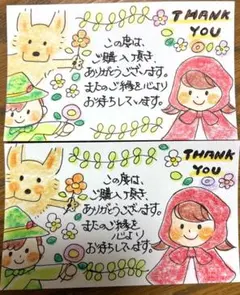 THANK
YOU
この度は、
ご購入頂き、
ありがとうございます。
またのご縁を心より
お待ちしています。
THANK
YOU
この度は、
ご購入頂き、
ありがとうございます。
またのご縁を
心より
お待ちしています。